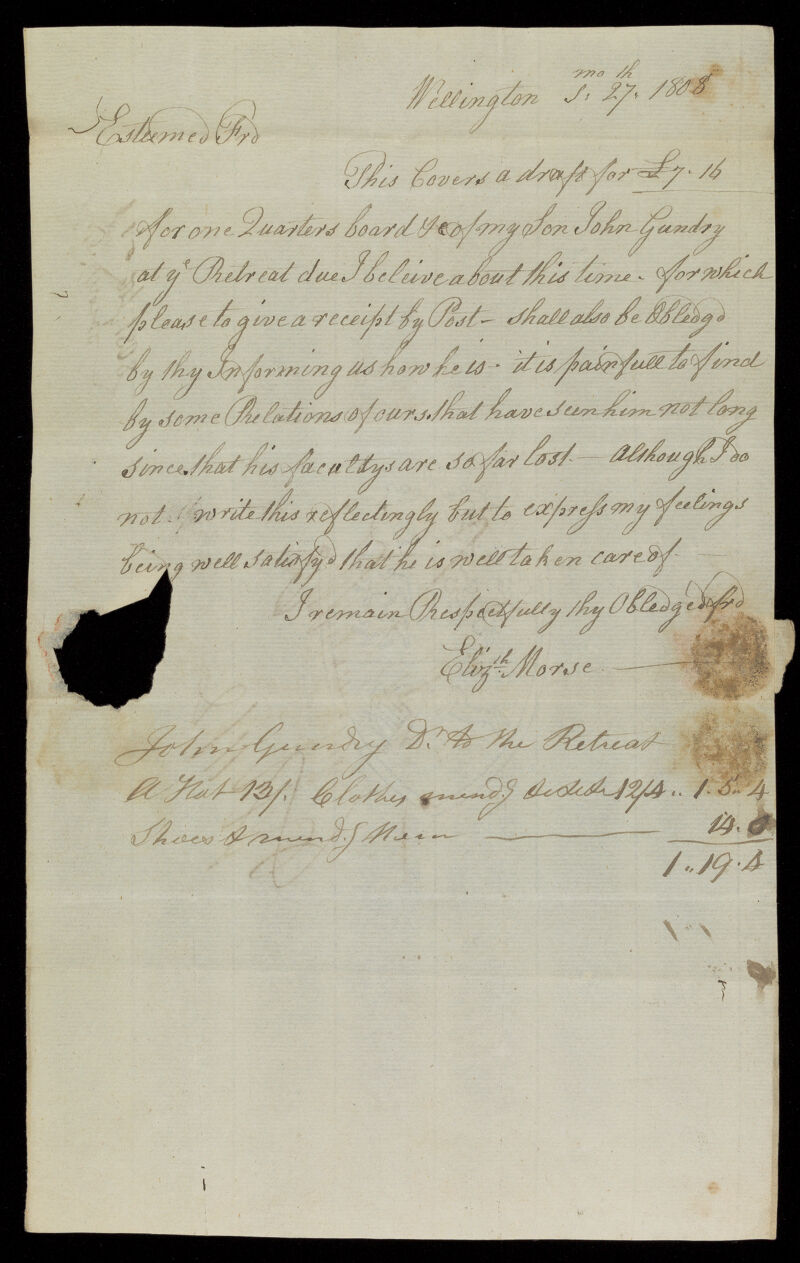 Wellington 5mo 27th 1808
Esteemed Frd
This Covers a draft for £7. 16
for one Quarters board &c of my Son John Gundry
at ye Retreat due I beleive about this time - for which
please to give a receipt by Post - shall also be Obledgd
by thy Informing us how he is - it is painfull to find
by some Relations of ours that have seen him not long
since that his facultys are so far lost - Although I do
not write this reflectingly but to express my feelings
being well satisfyd that he is well taken care of -
I remain Respectfully thy Obledged frd
Elizth Morse
John Gundry Dr to the Retreat
A Hat 13/. Clothes mendg &c &c &c 12/4 .. 1 .. 5 .. 4
Shoes & mendg them 14. 0
1 .. 19. 4